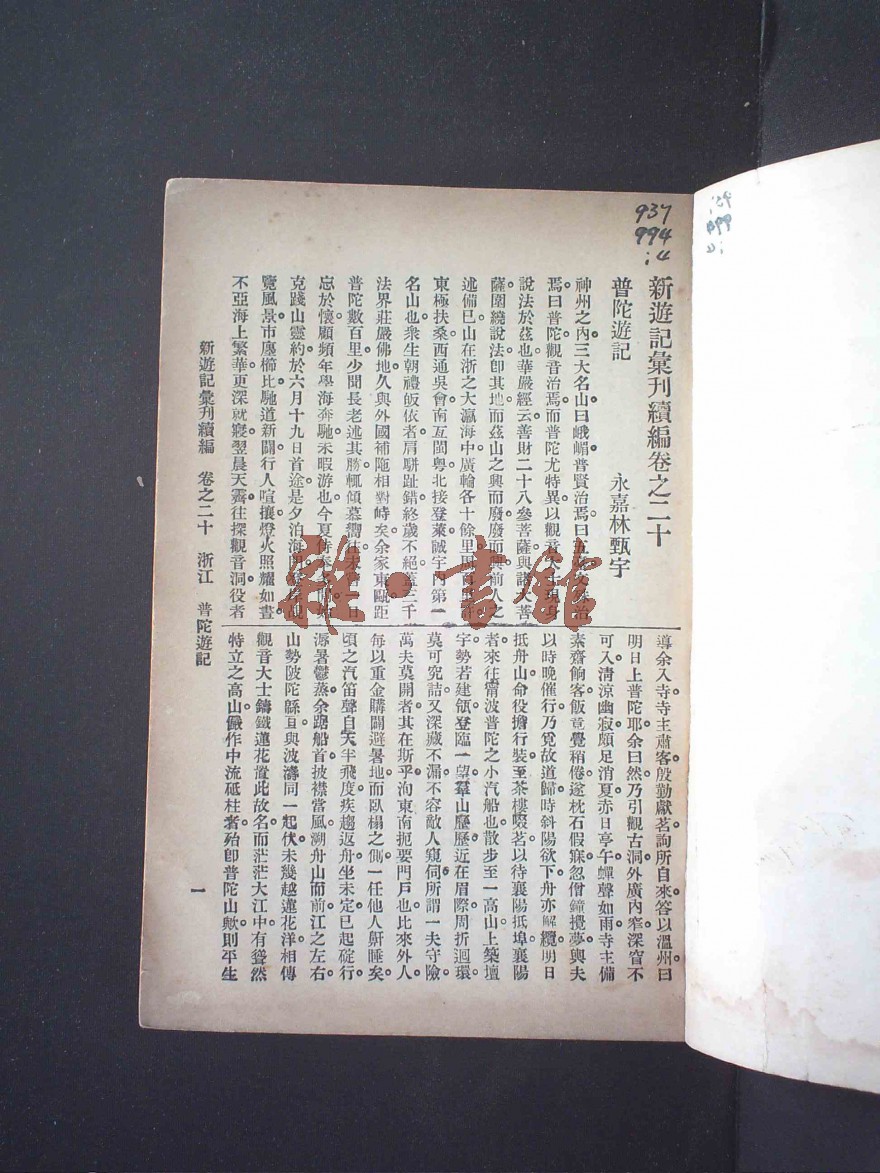 937
994
:4
新遊記彙刊續編卷之二十
普陀遊記
永嘉林甄宇
神州之內三大名山曰峨嵋普賢治焉曰五臺文殊治
焉曰普陀觀音治焉而普陀尤特異以觀音大士現身
說法於茲也華嚴經云善財二十八參菩薩與諸大菩
薩圍繞說法卽其地而茲山之興而廢廢而興前人之
述備已山在浙之大瀛海中廣輪各十餘里
東極扶桑西通吳會南亙閩粵北接登萊誠宇內第一
名山也衆生朝禮皈依者肩駢趾錯終歲不絕蓋三千
法界莊嚴佛地久與外國補陁相對峙矣余家東甌距
普陀數百里少聞長老述其勝輒傾慕嚮往未嘗一日
忘於懷顧頻年學海奔馳未暇游也今夏侍
克踐山靈約於六月十九日首途是夕泊海門
覽風景市廛櫛比馳道新闢行人喧攘燈火照耀如晝
不亞海上繁華更深就寢翌晨天霽往探觀音洞役者
導余入寺寺主肅客殷勤獻茗詢所自來答以溫州曰
明日上普陀耶余曰然乃引觀古洞外廣內窄深窅不
可入淸涼幽寂頗足消夏赤日亭午蟬聲如雨寺主備
素齋餉客飯竟覺稍倦遂枕石假寐忽僧鐘攪夢與夫
以時晚催行乃覓故道歸時斜陽欲下舟亦解纜明日
抵舟山命役擔行裝至茶樓啜茗以待襄陽抵埠襄陽
者來往甯波普陀之小汽船也散步至一高山上築壇
宇勢若建瓴登臨一望羣山歷歷近在眉際周折迴環
莫可究詰又深藏不漏不容敵人窺伺所謂一夫守險
萬夫莫開者其在斯乎洵東南扼要門戶也比來外人
每以重金購闢避暑地而臥榻之側一任他人鼾睡矣
頃之汽笛聲自天半飛度疾趨返舟坐未定已起碇行
溽暑鬱蒸余踞船首披襟當風溯舟山而前江之左右
山勢陂陀緜亘與波濤同一起伏未幾越蓮花洋相傳
觀音大士鑄鐵蓮花置此故名而茫茫大江中有聳然
特立之高山儼作中流砥柱者殆卽普陀山歟則平生
新遊記彙刊續編 卷之二十 浙江 普陀遊記
一
雜·書館